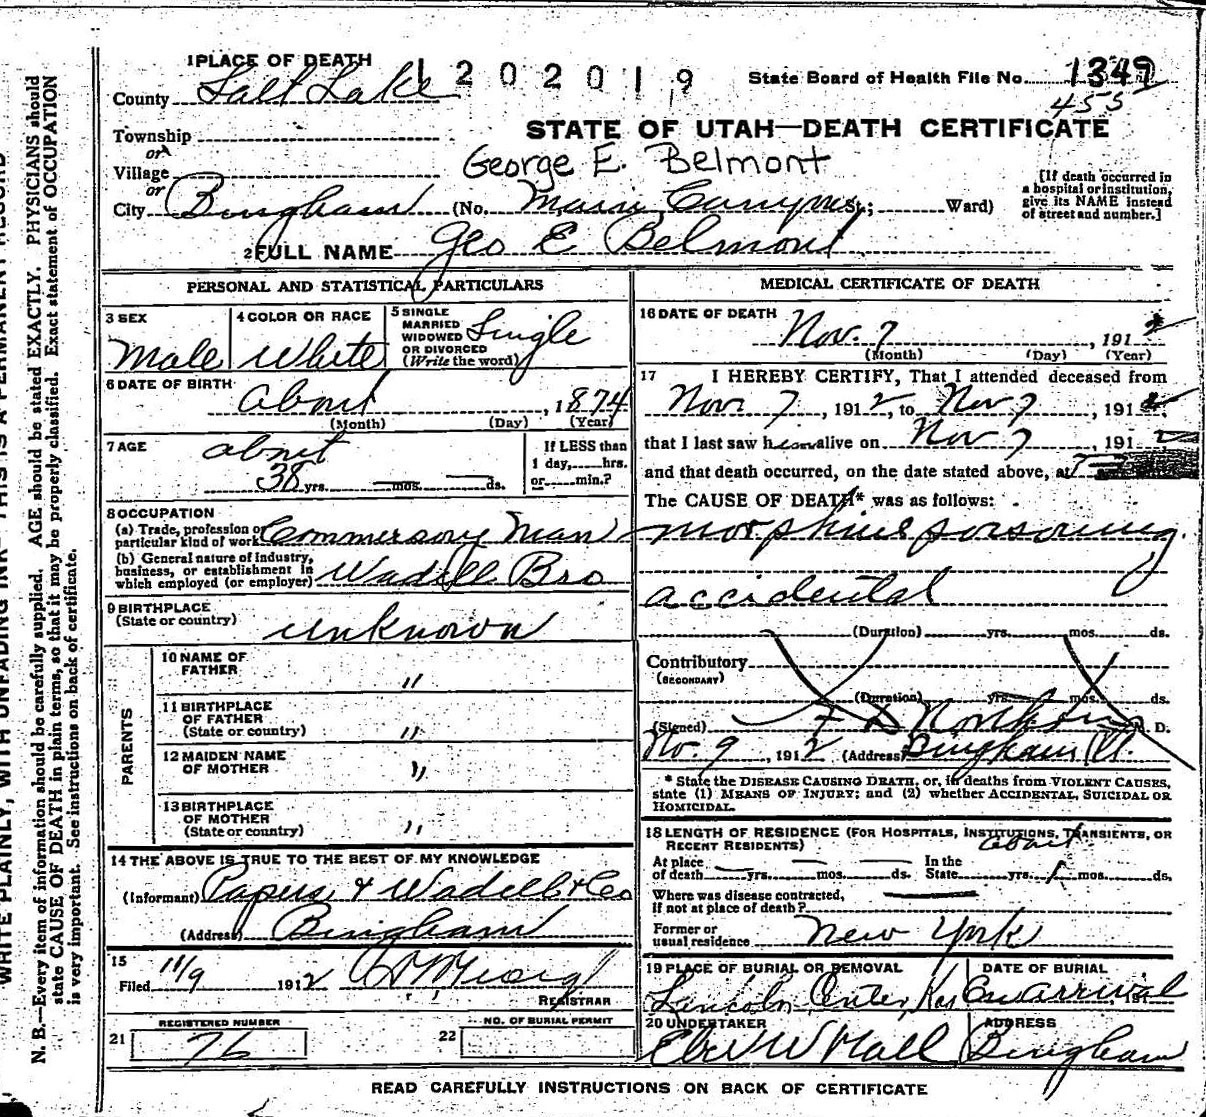 1 PLACE OF DEATH
1202019
State Board of Health File No. 1349
455
County Salt Lake
STATE OF UTAH—DEATH CERTIFICATE
Township
or
Village
George E. Belmont
or
City Bingham (No. Main Canyon St.; Ward)
[If death occurred in a hospital or institution, give its NAME instead of street and number.]
2 FULL NAME Geo E Belmont
PERSONAL AND STATISTICAL PARTICULARS
3 SEX
Male
4 COLOR OR RACE
White
5 SINGLE MARRIED WIDOWED OR DIVORCED (Write the word)
Single
6 DATE OF BIRTH
about , 1874
(Month) (Day) (Year)
7 AGE
about
38 yrs. mos. ds.
If LESS than 1 day, hrs. or min.?
8 OCCUPATION
(a) Trade, profession or particular kind of work Commersory Man
(b) General nature of industry, business, or establishment in which employed (or employer) Wadell Bro
9 BIRTHPLACE (State or country)
unknown
PARENTS
10 NAME OF FATHER "
11 BIRTHPLACE OF FATHER (State or country) "
12 MAIDEN NAME OF MOTHER "
13 BIRTHPLACE OF MOTHER (State or country) "
14 THE ABOVE IS TRUE TO THE BEST OF MY KNOWLEDGE
(Informant) Papers & Wadell & Co
(Address) Bingham
15
Filed 11/9 1912
REGISTRAR
REGISTERED NUMBER
21 76
NO. OF BURIAL PERMIT
22
MEDICAL CERTIFICATE OF DEATH
16 DATE OF DEATH
Nov. 7 , 191
(Month) (Day) (Year)
17 I HEREBY CERTIFY, That I attended deceased from
Nov 7 , 1912, to Nov 7 , 1912
that I last saw him alive on Nov 7 , 191
and that death occurred, on the date stated above, at 7
The CAUSE OF DEATH* was as follows:
morphine poisoning
accidental
(Duration) yrs. mos. ds.
Contributory
(SECONDARY)
(Duration) yrs. mos. ds.
(Signed) M. D.
No. 9 , 1912 (Address) Bingham Ut.
* State the DISEASE CAUSING DEATH, or, in deaths from VIOLENT CAUSES,
state (1) MEANS OF INJURY; and (2) whether ACCIDENTAL, SUICIDAL OR
HOMICIDAL.
18 LENGTH OF RESIDENCE (FOR HOSPITALS, INSTITUTIONS, TRANSIENTS, OR
RECENT RESIDENTS)
about
At place of death yrs. mos. ds. In the State yrs. 1 mos. ds.
Where was disease contracted,
if not at place of death?
Former or usual residence New York
19 PLACE OF BURIAL OR REMOVAL
Lincoln Center, Kas
DATE OF BURIAL
On arrival
20 UNDERTAKER
Eber W Hall
ADDRESS
Bingham
READ CAREFULLY INSTRUCTIONS ON BACK OF CERTIFICATE
WRITE PLAINLY, WITH UNFADING INK—THIS IS A PERMANENT RECORD
N. B.—Every item of information should be carefully supplied. AGE should be stated EXACTLY. PHYSICIANS should
state CAUSE OF DEATH in plain terms, so that it may be properly classified. Exact statement of OCCUPATION
is very important. See instructions on back of certificate.